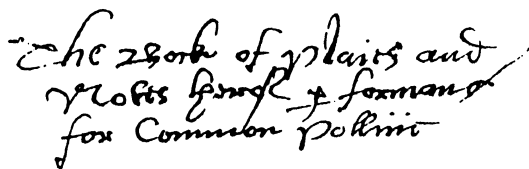 The Bocke of Plaies and
Notes herof ꝑ formans
for Common Pollicie